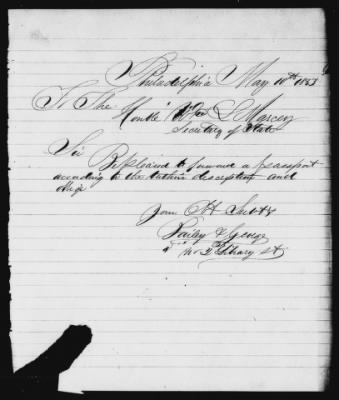 Philadelphia May 10th 1853
To The
Honble Wm L Marcey
Secretary of State
Sir Be pleased to forward a passport
according to the within description and
oblige
Your Ob Servts
George
No